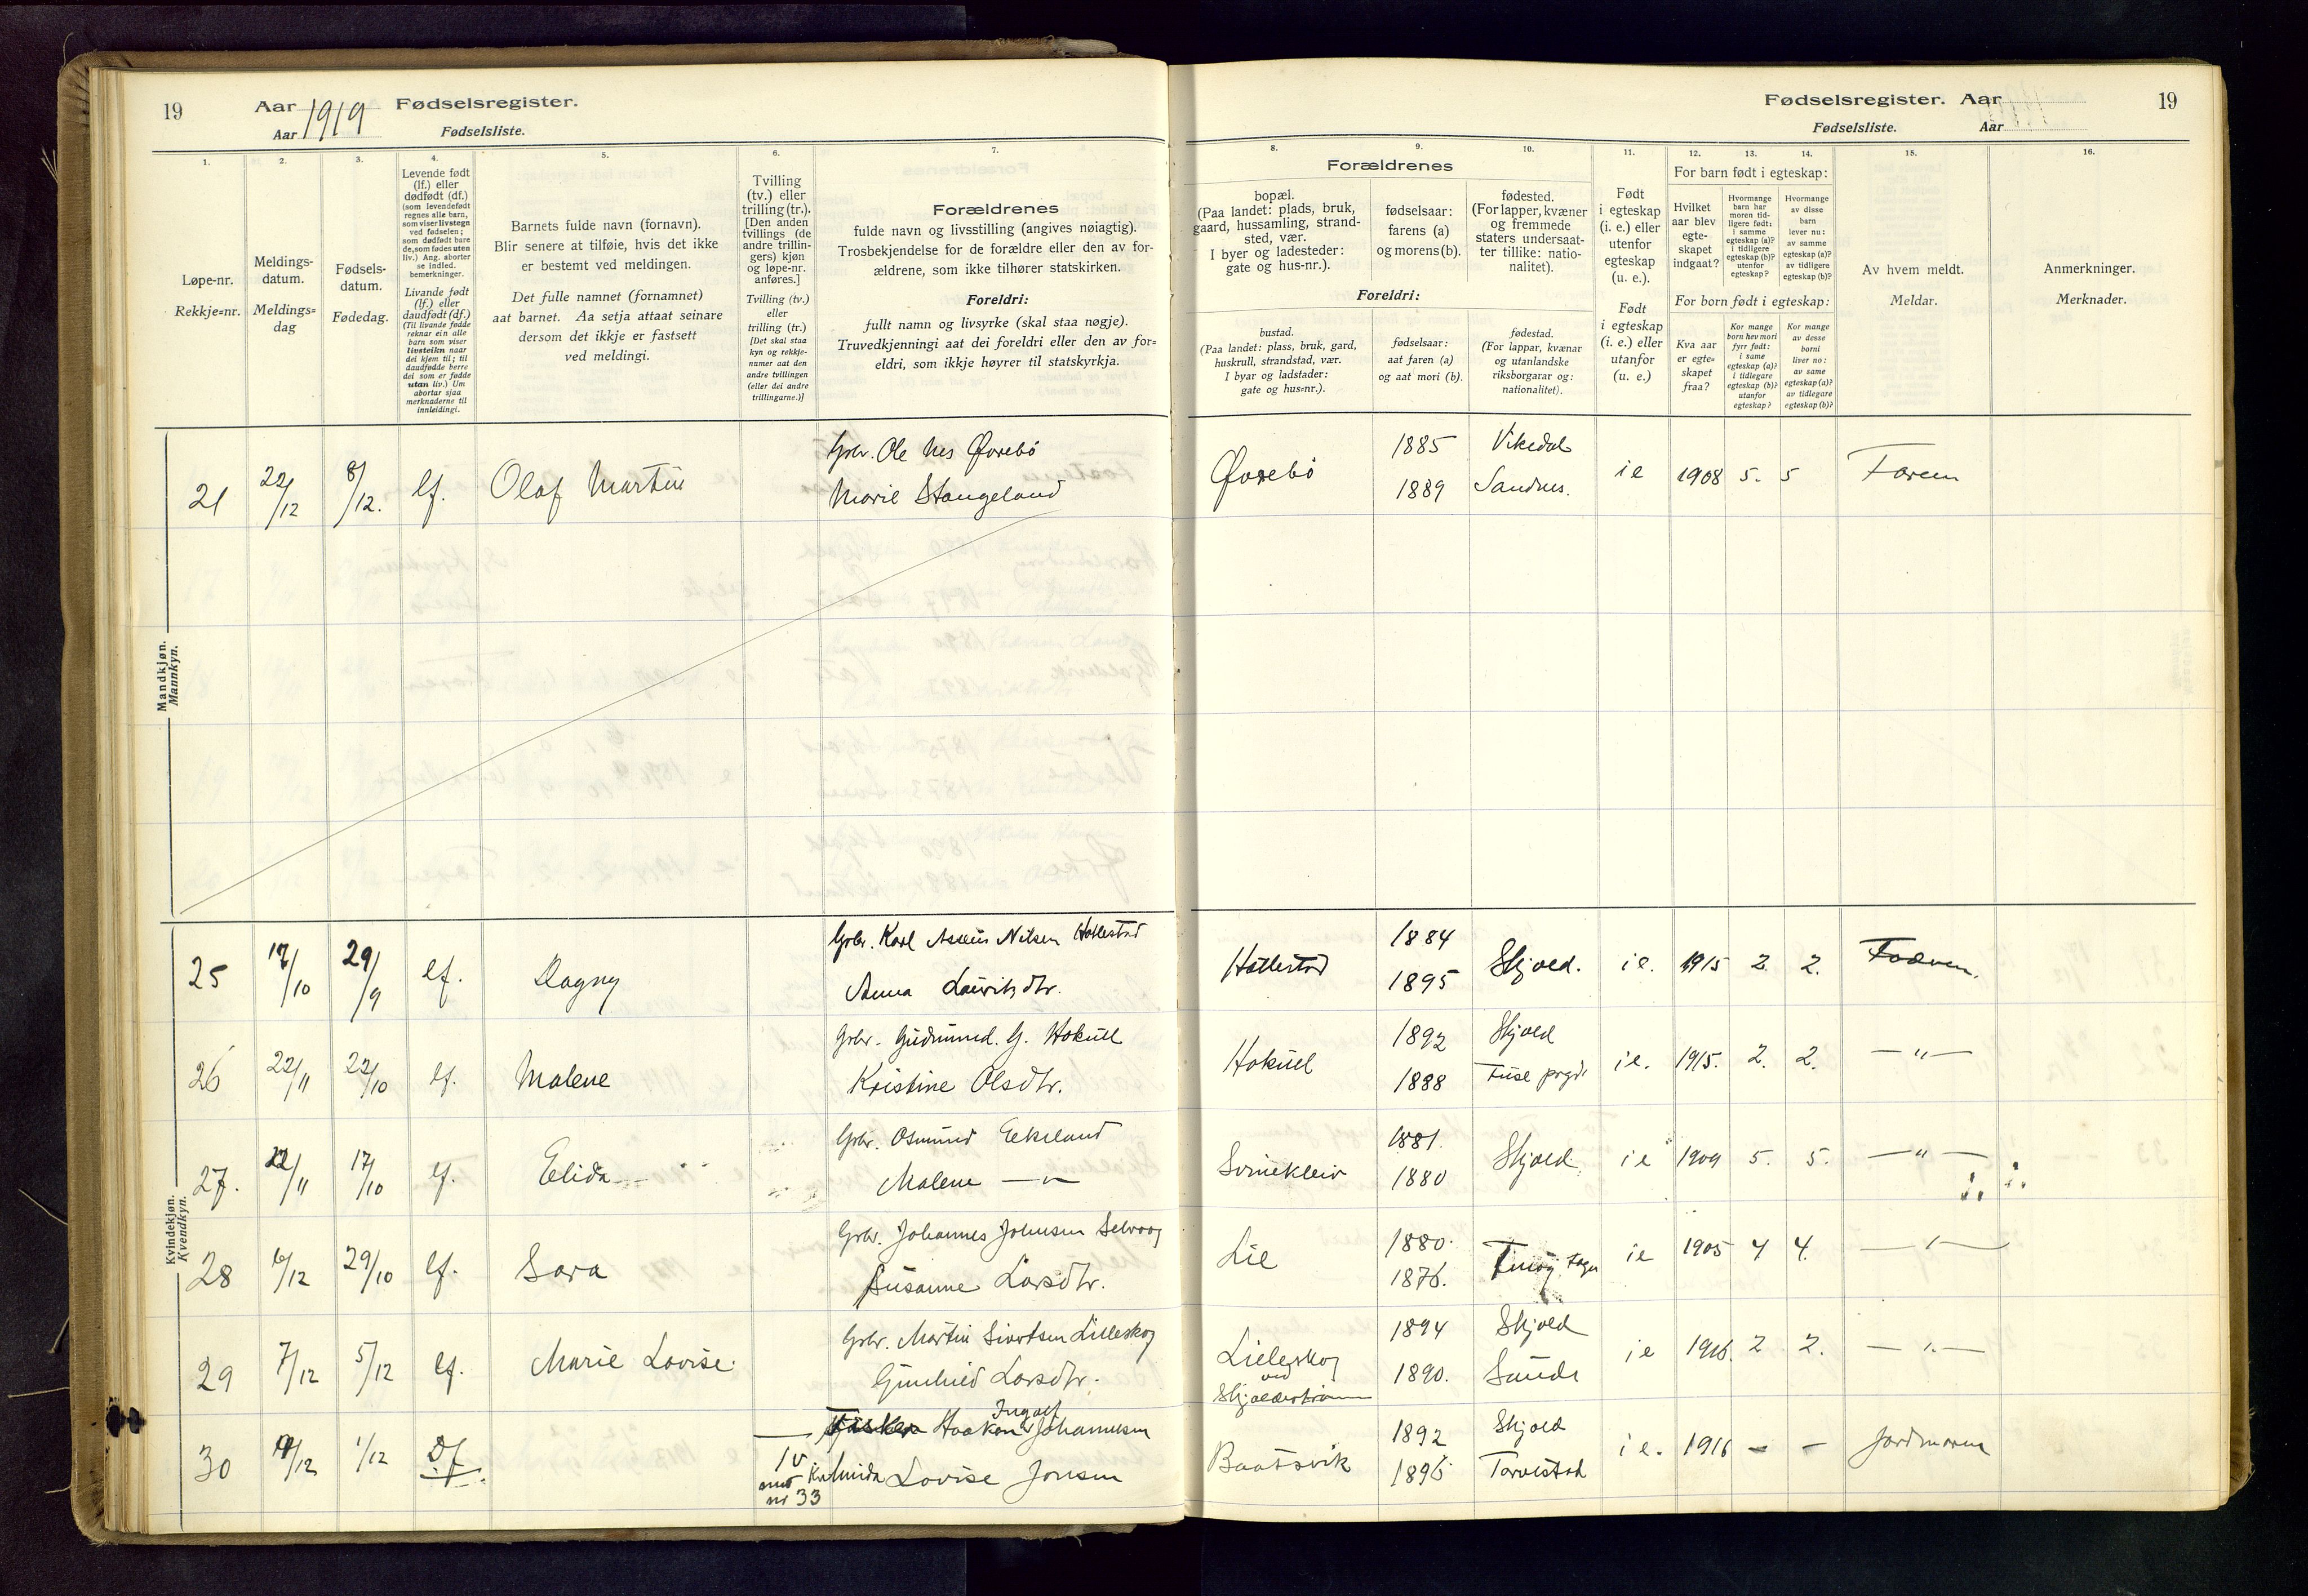 19
Aar 1919 Fødselsregister.
Aar Fødselsliste.
Fødselsregister. Aar
19
Fødselsliste. Aar
1.
2.
3.
4.
5.
6.
7.
8.
9.
10.
11.
12.
13.
14.
15.
16.
Løpe-nr.
Rekkje=nr.
Meldings-
datum.
Meldings=
dag
Fødsels-
datum.
Fødedag.
Levende født
(lf.) eller
dødfødt (df.)
(som levendefødt
regnes alle barn,
som viser livstegn
ved fødselen;
som dødfødt bare
de, som fødes uten
liv.) Ang. aborter
se indled.
bemerkninger.
Livande født
(lf.) eller
daudfødt (df.)
(Til livande fødde
reknar ein alle
barn som viser
livsteikn naar
dei kjem til; til
daudfødde berre
dei som er fødde
utan liv.) Um
abortar sjaa
merknaderne til
innleidingi.
Barnets fulde navn (fornavn).
Blir senere at tilføie, hvis det ikke
er bestemt ved meldingen.
Det fulle namnet (fornamnet)
aat barnet. Aa setja attaat seinare
dersom det ikkje er fastsett
ved meldingi.
Tvilling
(tv.) eller
trilling (tr.).
[Den anden
tvillings (de
andre trillin-
gers) kjøn
og løpe-nr.
anføres.]
Tvilling (tv.)
eller
trilling (tr.)
[Det skal staa
kyn og rekkje-
numer aat den
andre tvillingen
(eller dei andre
trillingarne.)]
Forældrenes
fulde navn og livsstilling (angives nøiagtig).
Trosbekjendelse for de forældre eller den av for-
ældrene, som ikke tilhører statskirken.
Foreldri:
fullt namn og livsyrke (skal staa nøgje).
Truvedkjenningi aat dei foreldri eller den av for=
eldri, som ikkje høyrer til statskyrkja.
Forældrenes
bopæl.
(Paa landet: plads, bruk,
gaard, hussamling, strand-
sted, vær.
I byer og ladesteder:
gate og hus-nr.).
fødselsaar:
farens (a)
og morens (b).
fødested.
(For lapper, kvæner
og fremmede
staters undersaat-
ter tillike: natio-
nalitet).
Foreldri:
bustad.
(Paa landet: plass, bruk, gard,
huskrull, strandstad, vær.
I byar og ladstader:
gate og hus=nr.).
fødselsaar:
aat faren (a)
og aat mori (b).
fødestad.
(For lappar, kvænar
og utanlandske
riksborgarar og:
nationalitet).
Født
i egteskap
(i. e.) eller
utenfor
egteskap
(u. e.).
Født
i egteskap
(i. e.) eller
utanfor
(u. e.)
For barn født i egteskap:
Hvilket
aar blev
egte-
skapet
indgaat?
Hvormange
barn har
moren tid-
ligere født:
i samme
egteskap (a)?
i tidligere
egteskap (b)?
utenfor
egteskap?
Hvormange
av disse
barn
lever nu:
av samme
egteskap (a)?
av tidligere
egteskap (b)?
For born født i egteskap:
Kva aar
er egte=
skapet
fraa?
Kor mange
born hev mori
fyrr født:
i same
egteskap (a)?
i tidlegare
egteskap (b)?
utanfor
egteskap?
Kor mange
av desse
borni
liver no:
av same
egteskap (a)?
av tidlegare
egteskap (b)?
Av hvem meldt.
Meldar.
Anmerkninger.
Merknader.
Mandkjøn.
Mannkyn.
21 22/12 8/12. lf. Olaf Martin Gbr. Ole Nes Øvrebö
Marie Stangeland
Øvrebö 1885 Vikedal
1889 Sandnes. ie 1908 5. 5 Faren
Kvindekjøn.
Kvendkyn.
25 17/10 29/9 lf. Dagny Gbr. Karl Nilsen Hattestad
Anna Lauritsdtr.
Hattestad 1884
1895 Skjold. ie. 1915 2. 2. Faderen.
26 22/11 22/10 lf. Malene Gbr. Gudmund. G. Hokull
Kristine Olsdtr.
Hokull 1892 Skjold
1888 Fuse prgd. ie. 1915. 2. 2. —"—
27. 22/11 17/10 lf. Elida Gbr. Osmund Eikeland
Malene —"—
Svinekleiv 1881.
1880 Skjold ie 1909 5. 5. —"—
28 6/12 29/10 lf. Sara Gbr. Johannes Johnsen Selvaag
Susanne Larsdtr.
Lie 1880.
1876. ie 1905 4 4. —"—
29 7/12 5/12 lf. Marie Lovise. Gbr. Martin Sivertsen Lilleskog
Gunhild Larsdtr.
Lilleskog
ved
Skjoldestraum
1894 Skjold
1890. Saude ie 1916. 2 2. —"—
30 19/12 1/12 Df. tv
med Kv
nr 33
Fisker Haakon Ingolf Johannesen
Almida Lovise Jonsen
Baatsvik 1892 Skjold
1896 Torvestad ie. 1916 – – Jordmoren